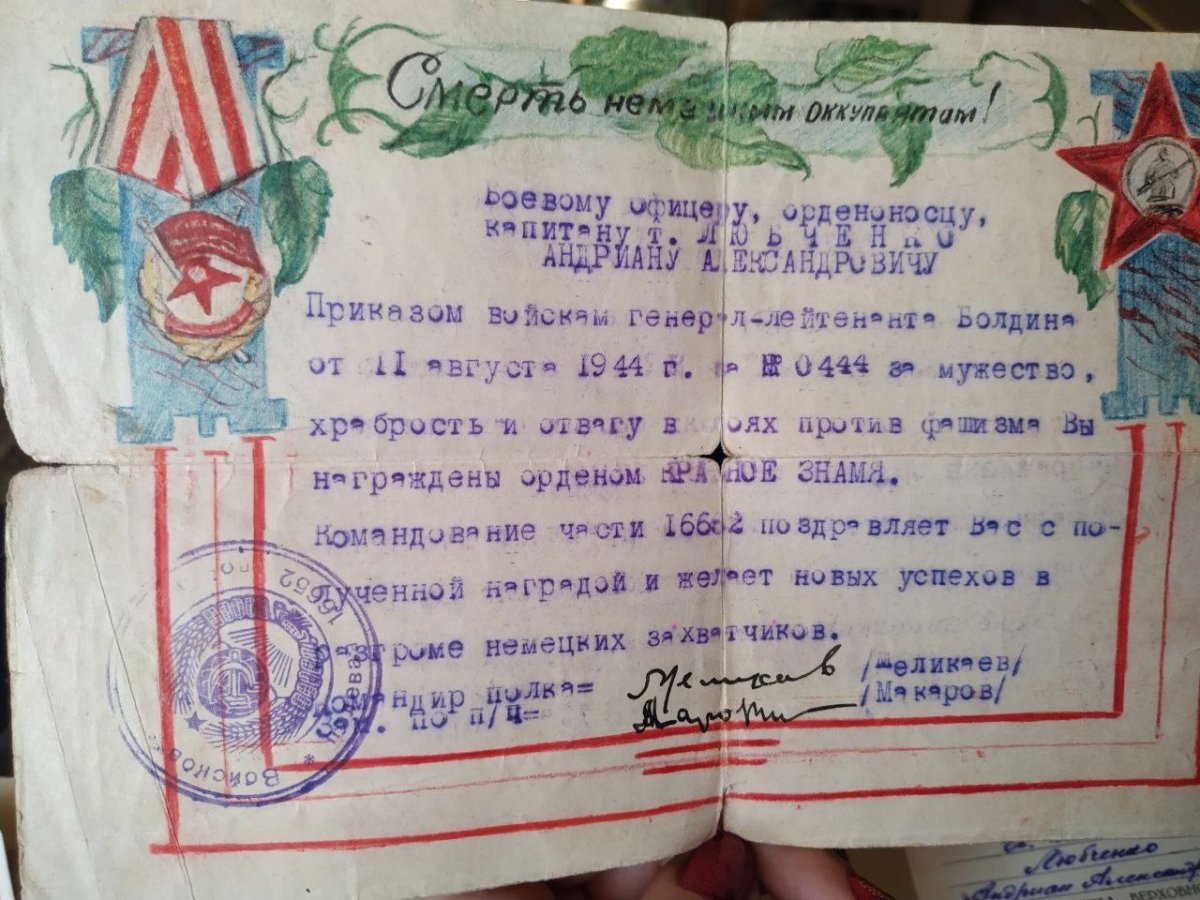 Смерть немецким оккупантам!
Боевому офицеру, орденоносцу,
капитану т. ЛЮБЧЕНКО
АНДРИАНУ АЛЕКСАНДРОВИЧУ
Приказом войскам генерал-лейтенанта Болдина
от 11 августа 1944 г. за № 0444 за мужество,
храбрость и отвагу в боях против фашизма Вы
награждены орденом КРАСНОЕ ЗНАМЯ.
Командование части 16652 поздравляет Вас с по-
лученной наградой и желает новых успехов в
разгроме немецких захватчиков.
Командир полка= /Меликаев/
по п/ч= /Макаров/
Полевая 16652
Любченко
Андриан Александр